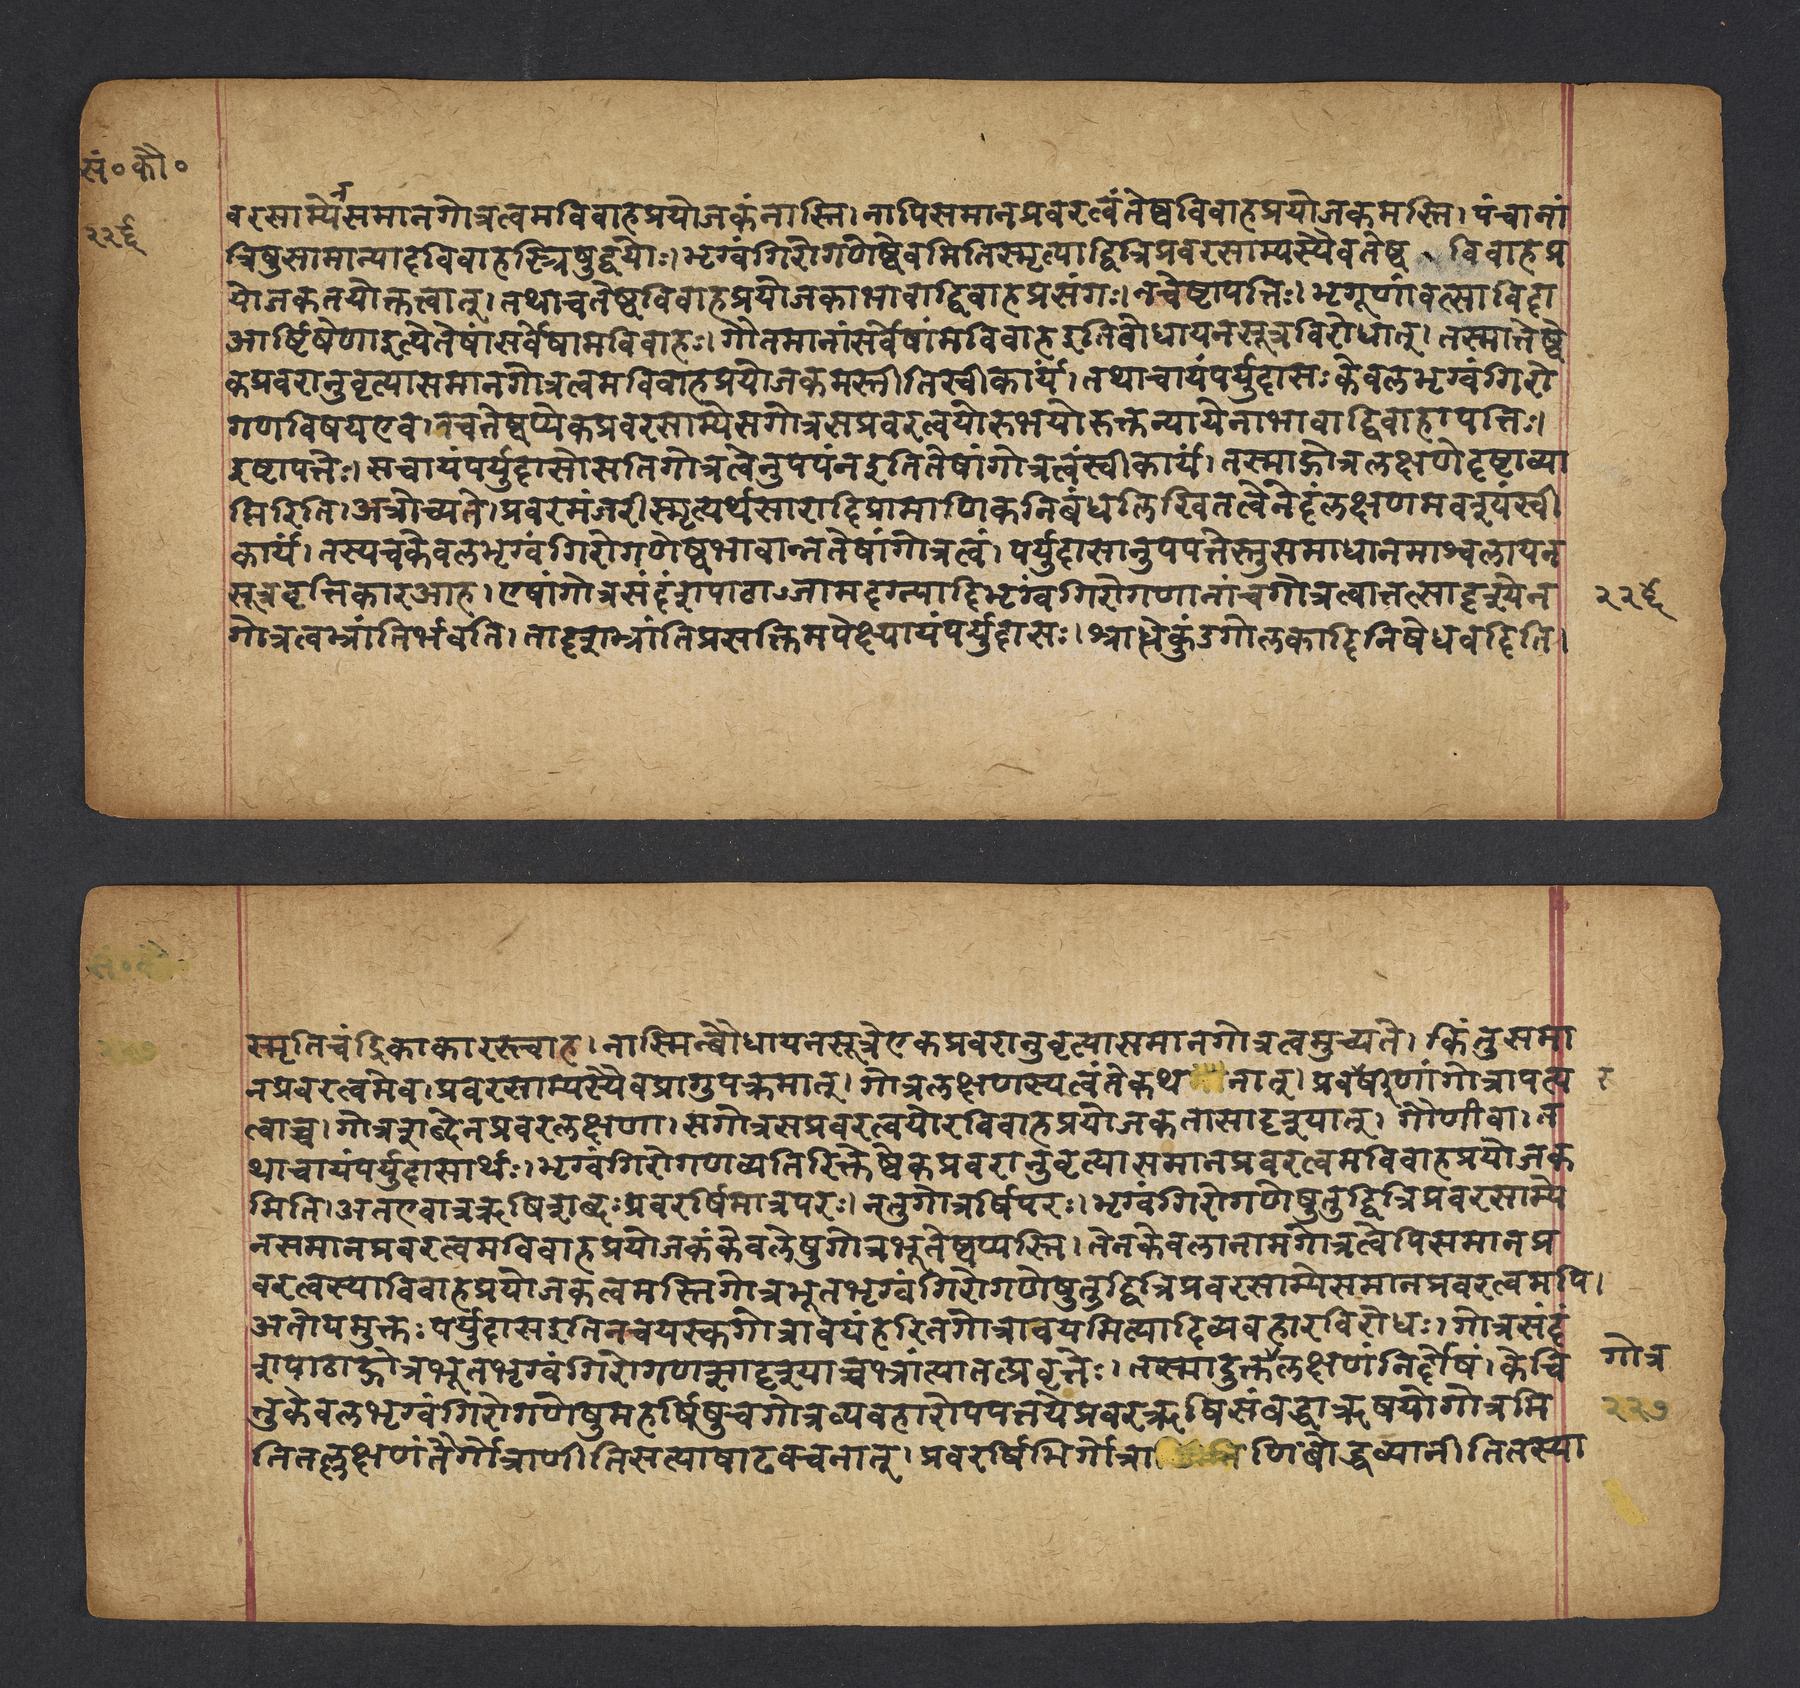 सं०कौ०
२२६
वरसाम्येनसमानगोत्रत्वमविवाहप्रयोजकंनास्ति। नापिसमानप्रवरत्वंतेष्वविवाहप्रयोजकमस्ति। पंचानां
त्रिषुसामान्यादविवाहस्त्रिषुद्वयोः। भृग्वंगिरोगणेष्वेवमितिस्मृत्याद्वित्रिप्रवरसाम्यस्यैवतेष्व विवाहेप्र
योजकतयोक्तत्वात्। तथाचतेष्वविवाहप्रयोजकाभावाद्विवाहप्रसंगः। नचेष्टापत्तिः। भृगूणांवत्साविदा
आर्ष्टिषेणाइत्येतेषांसर्वेषामविवाहः। गौतमानांसर्वेषांमविवाहइतिबौधायनसूत्रविरोधात्। तस्मात्तेष्वे
कप्रवरानुवृत्यासमानगोत्रत्वमविवाहप्रयोजकमस्तीतिस्वीकार्यं। तथाचायंपर्युदासःकेवलभृग्वंगिरो
गणविषयएव। नचतेष्वप्येकप्रवरसाम्येसगोत्रसप्रवरत्वयोरुभयोरुक्तन्यायेनाभावाद्विवाहापत्तिः।
इष्टापत्तेः। सचायंपर्युदासोसतिगोत्रत्वेनुपपंनइतितेषांगोत्रत्वंस्वीकार्यं। तस्माद्गोत्रलक्षणेदृष्टाव्या
प्तिरिति। अत्रोच्यते। प्रवरमंजरीस्मृत्यर्थसारादिप्रामाणिकनिबंधलिखितत्वेनेदंलक्षणमवश्यंस्वी
कार्यं। तस्यचकेवलभृग्वंगिरोगणेष्वभावान्नतेषांगोत्रत्वं। पर्युदासानुपपत्तेस्तुसमाधानमाश्वलायन
सूत्रवृत्तिकारआह। एषांगोत्रसंदंशपाठाऽजामदग्न्यादिभृग्वंगिरोगणानांचगोत्रत्वात्तत्सादृश्येन
२२६
गोत्रत्वभ्रांतिर्भवति। तादृशभ्रांतिप्रसक्तिमपेक्ष्यायंपर्युदासः। श्राद्धेकुंडगोलकादिनिषेधवदिति।
स्मृतिचंद्रिकाकारस्त्वाह। नास्मिन्बौधायनसूत्रेएकप्रवरानुवृत्यासमानगोत्रत्वमुच्यते। किंतुसमा
नप्रवरत्वमेव। प्रवरसाम्यस्यैवप्रागुपक्रमात्। गोत्रलक्षणस्यत्वंतेकथ नात्। प्रवर्षीणांगोत्रापत्य
त्वाच्च। गोत्रशब्देनप्रवरलक्षणा। सगोत्रसप्रवरत्वयोरविवाहप्रयोजकतासादृश्यात्। गौणीवा। त
थाचायंपर्युदासार्थः। भृग्वंगिरोगणव्यतिरिक्तेष्वेकप्रवरानुवृत्यासमानप्रवरत्वमविवाहप्रयोजक
मिति। अतएवात्रऋषिशब्दःप्रवरर्षिमात्रपरः। नतुगोत्रर्षिपरः। भृग्वंगिरोगणेषुतुद्वित्रिप्रवरसाम्ये
नसमानप्रवरत्वमविवाहप्रयोजकंकेवलेषुगोत्रभूतेष्वप्यस्ति। तेनकेवलानामगोत्रत्वेपिसमानप्र
वरत्वस्याविवाहप्रयोजकत्वमस्तिगोत्रभूतभृग्वंगिरोगणेषुतुद्वित्रिप्रवरसाम्येसमानप्रवरत्वमपि।
अतोयमुक्तःपर्युदासइतिनचयस्कगोत्रावयंहरितगोत्रावयमित्यादिव्यवहारविरोधः। गोत्रसंदं
शपाठाद्गोत्रभूतभृग्वंगिरोगणसादृश्याच्चभ्रांत्यातत्प्रवृत्तेः। तस्मादुक्तंलक्षणंनिर्दोषं। केचि
गोत्र
त्तुकेवलभृग्वंगिरोगणेषुमहर्षिषुचगोत्रव्यवहारोपपत्तयेप्रवरऋषिसंबद्धाऋषयोगोत्रमि
२२७
तितल्लक्षणंतैर्गोत्राणीतिसत्याषाढवचनात्। प्रवरर्षिभिर्गोत्रा णिबोद्धव्यानीतितस्या